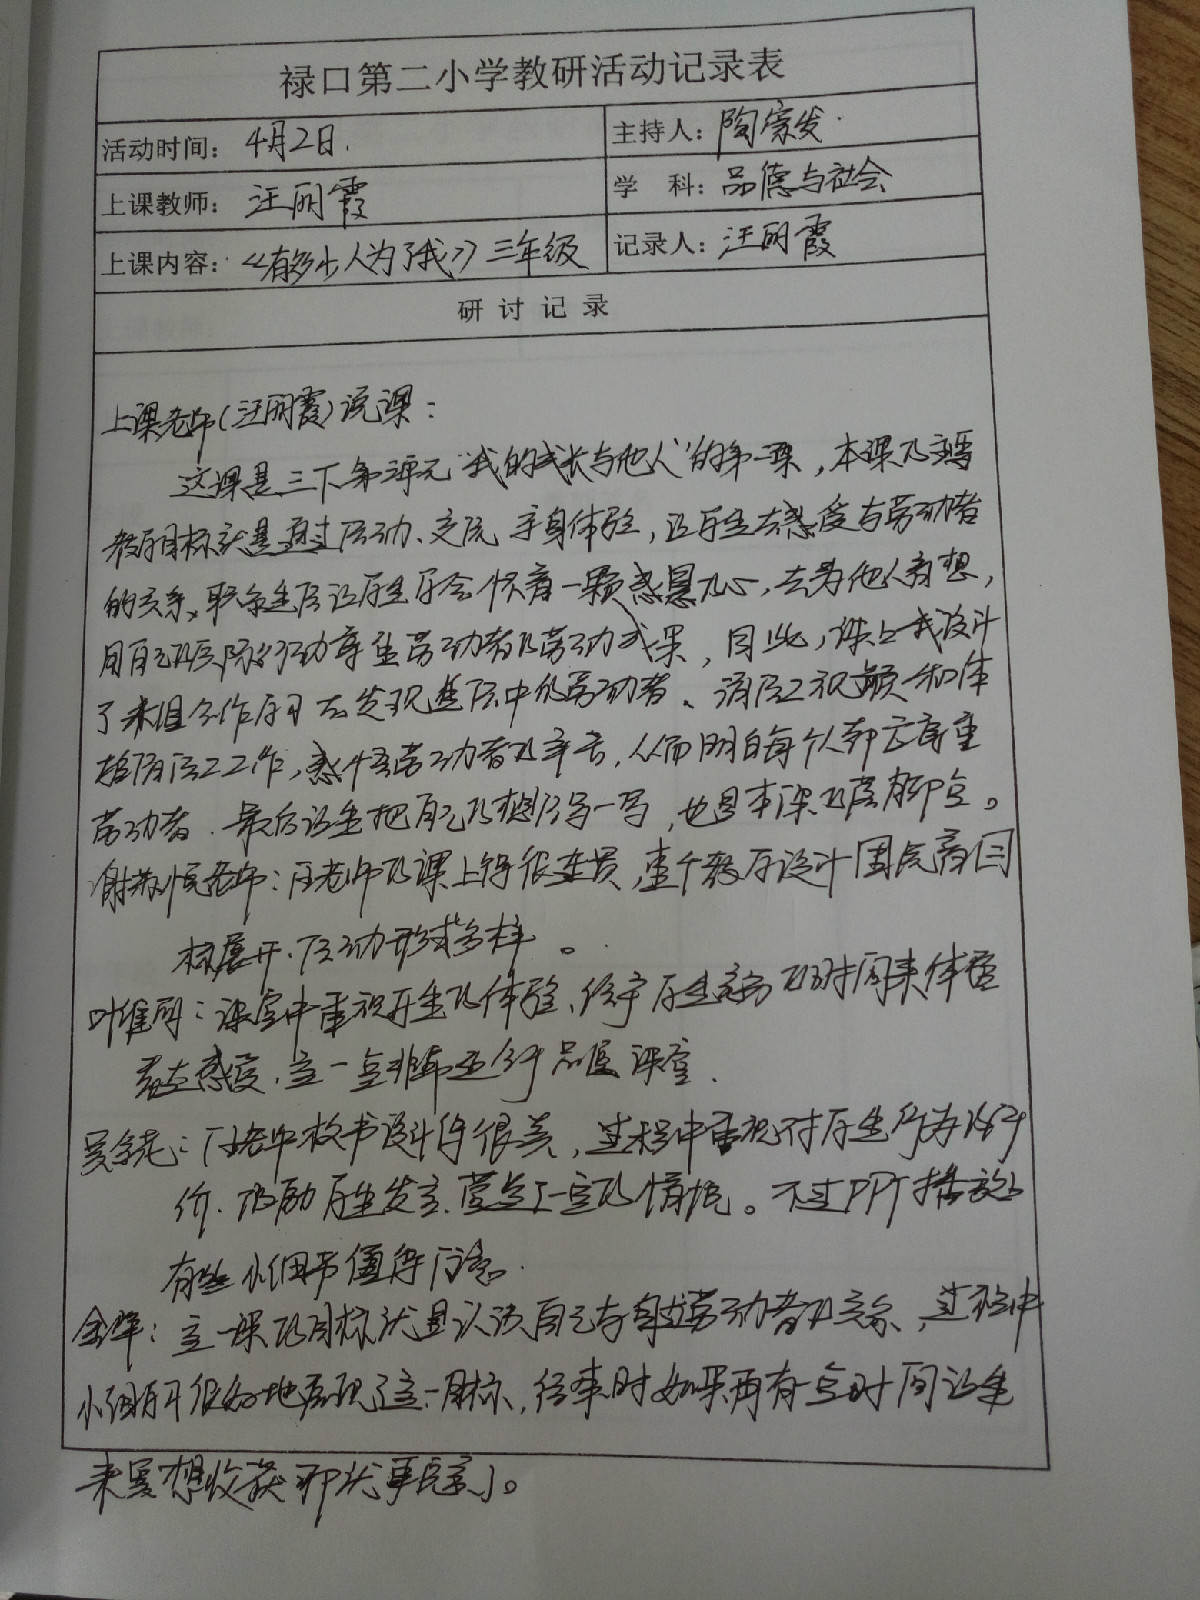 禄口第二小学教研活动记录表
活动时间：4月2日. 主持人：陶家发.
上课教师：汪丽霞 学 科：品德与社会
上课内容：《有多少人为了我》三年级 记录人：汪丽霞
研 讨 记 录
上课老师(汪丽霞)说课：
这课是三下第 单元“我的成长与他人”的第一课，本课的主要
教学目标就是通过活动、交流、亲身体验，让学生去感受与劳动者
的关系，联系生活让学生学会怀着一颗感恩的心，去为他人着想，
用自己的实际行动尊重劳动者的劳动成果，因此，课上我设计
了 组合作学习去发现生活中的劳动者、清洁工视频和体
清洁工工作，感悟劳动者的辛苦，从而明白每个人都应尊重
劳动者. 最后让生把自己的想法写一写，也是本课的落脚点。
谢 老师：汪老师的课上得很 ，整个教学设计围绕着目
标展开.活动形式多样。
叶 ：课堂中重视学生的体验、给予学生 的时间来体验
感受，这一点非常适合于品德课堂.
吴 ： 板书设计得很美，过程中重视对学生行为的评
价. 鼓励学生发言. 一定的情境。不过PPT播放
有些小细节值得注意.
金 ：这一课的目标就是认识自己与 劳动者的关系，过程中
小组 很好地 了这一目标，结束时如果再有一点时间让生
来 想收获那就更 了。